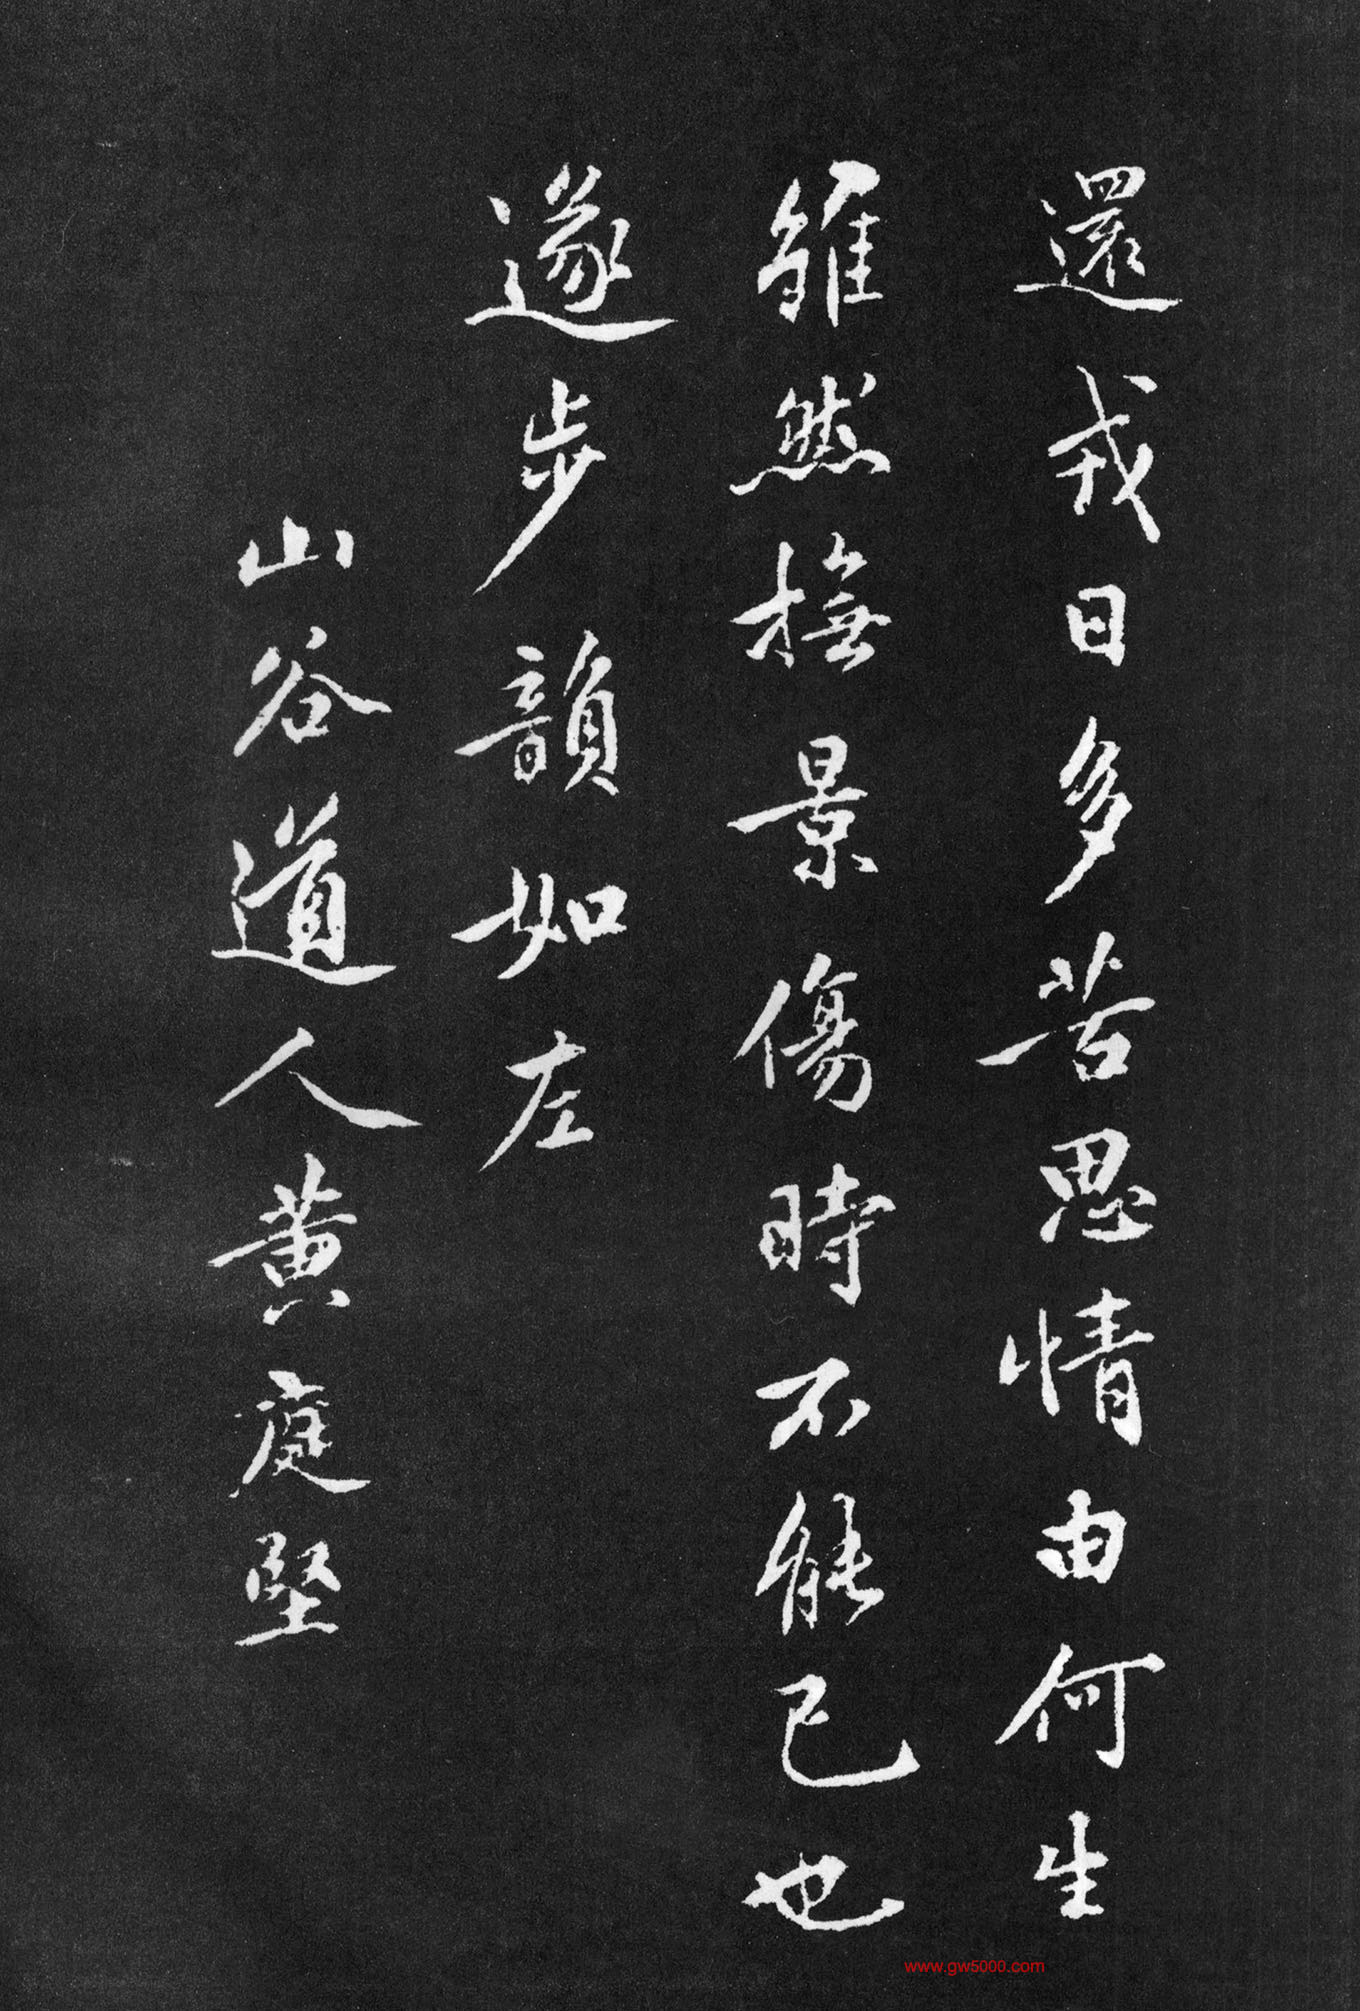 還戎日多苦思情由何生
雖然撫景傷時不能已也
遂步韻如左
山谷道人黄庭堅
www.gw5000.com